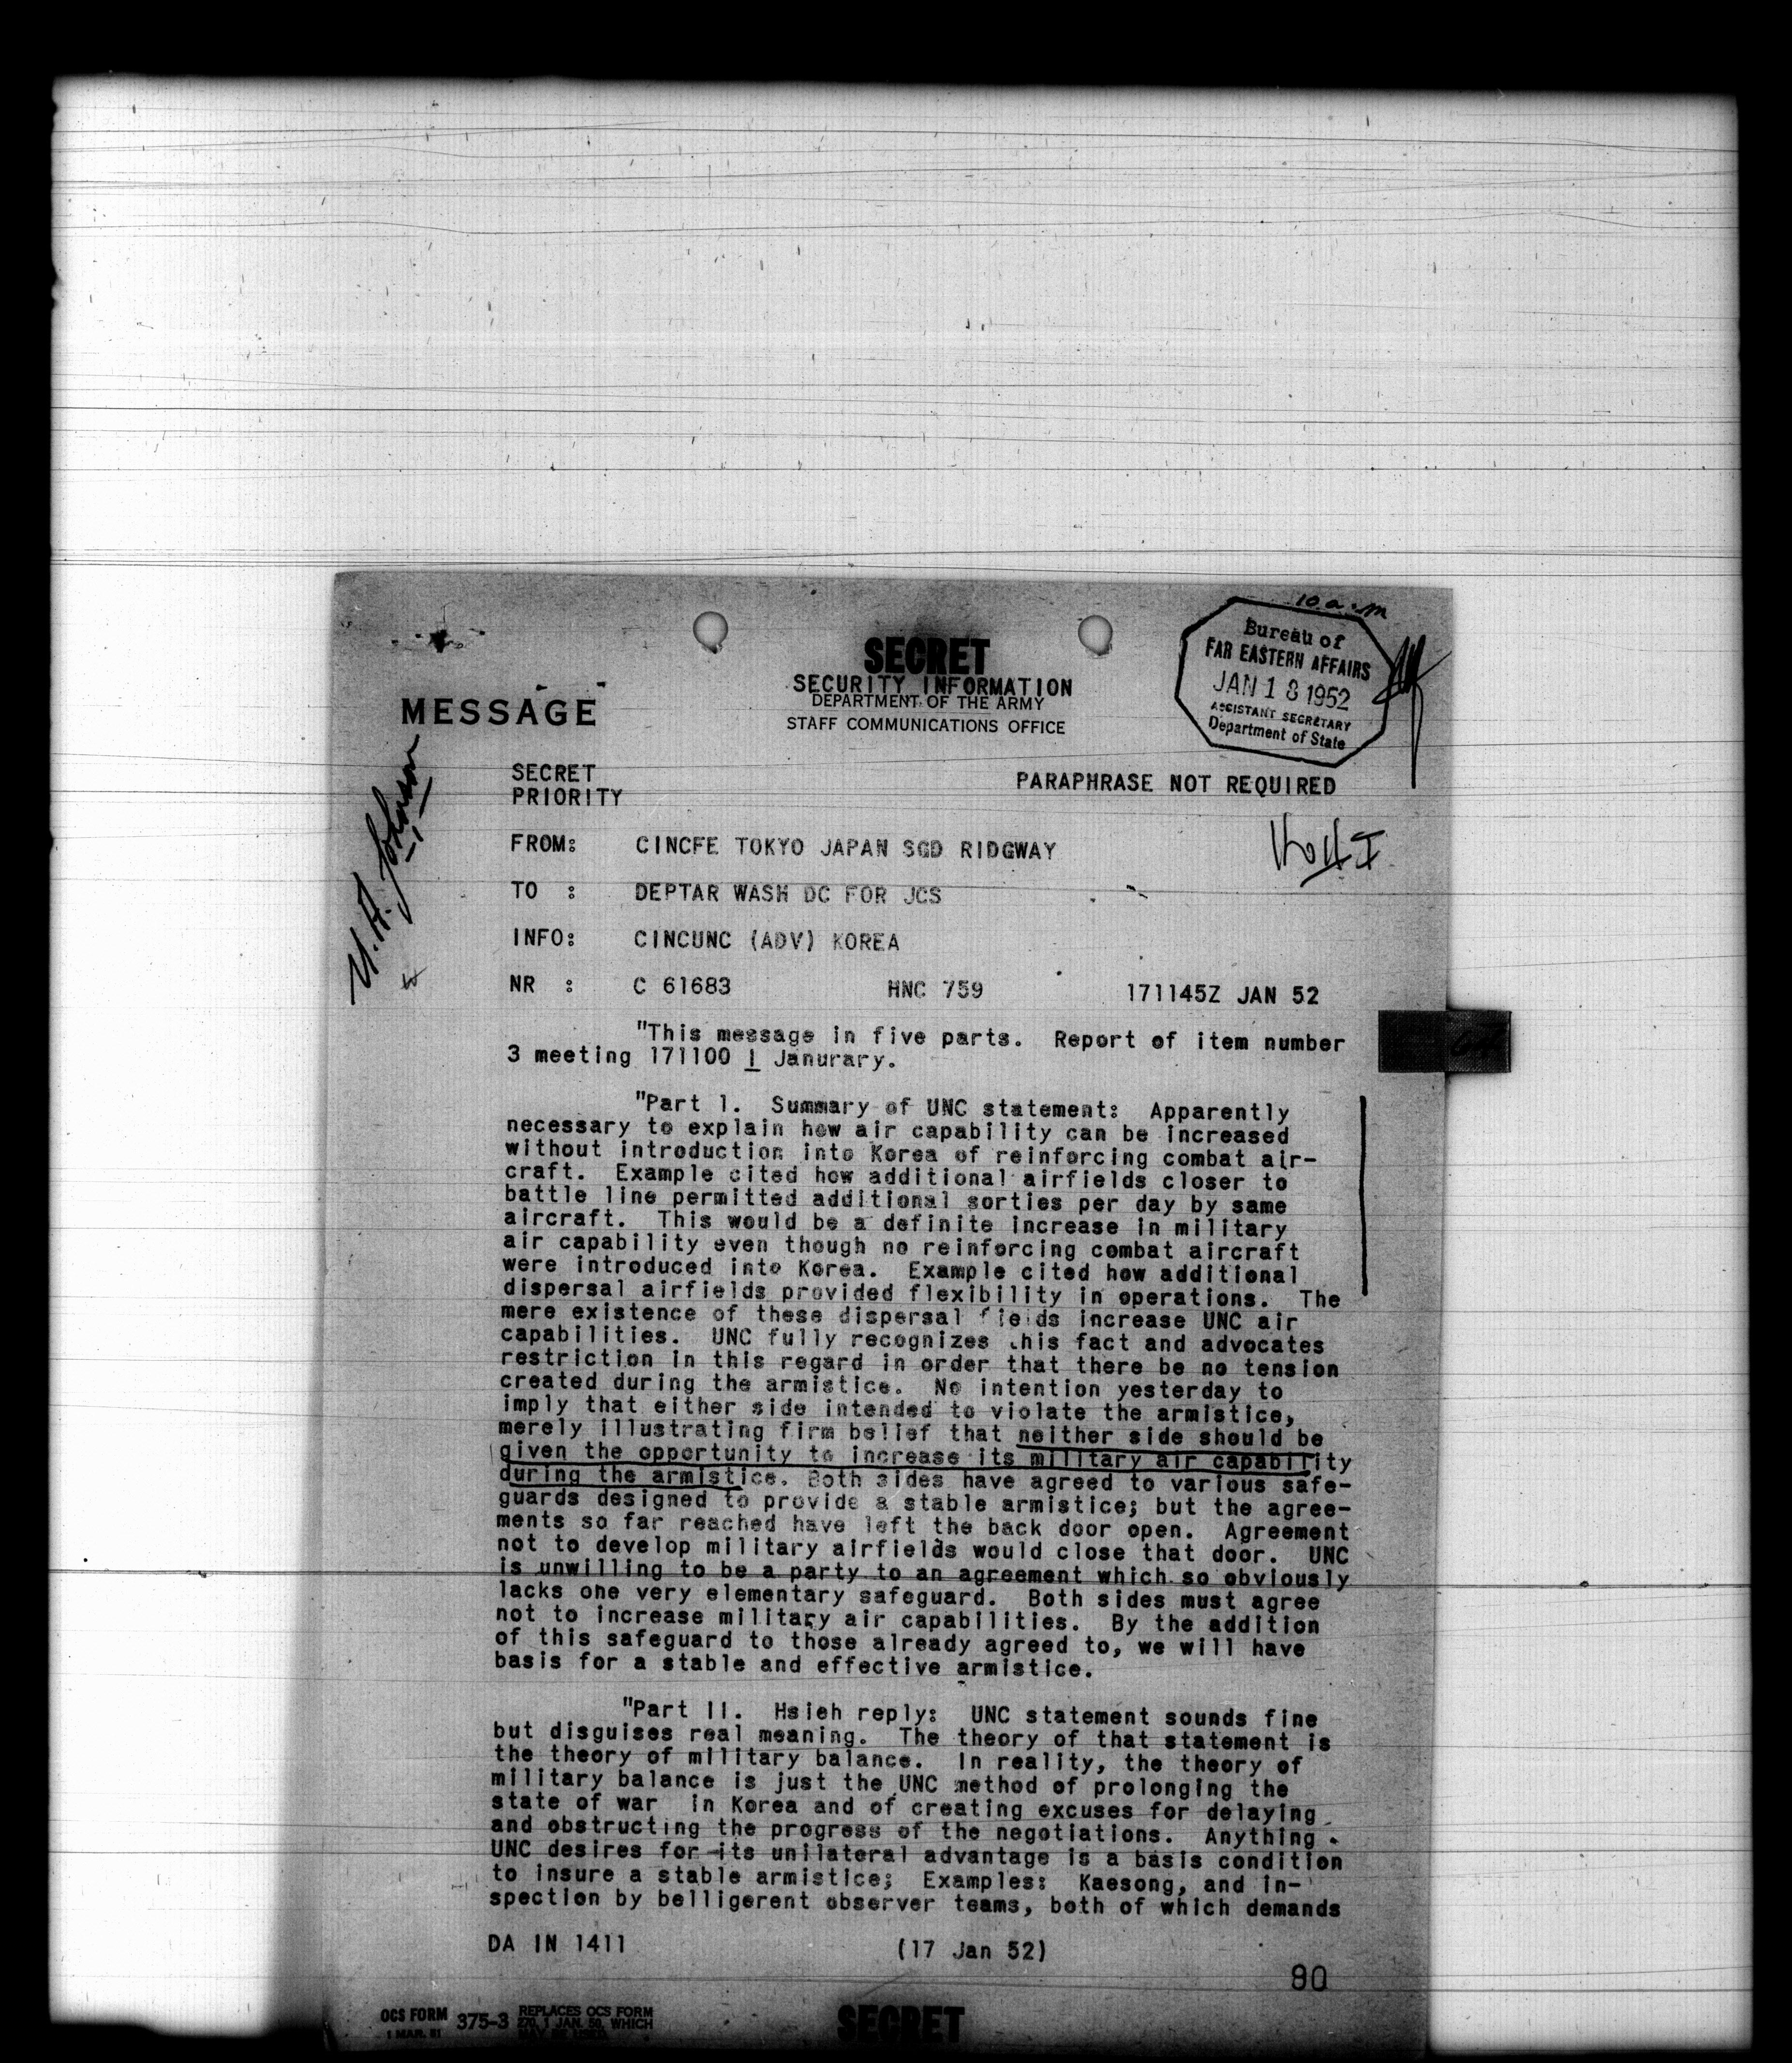 10 a.m
Bureau of
FAR EASTERN AFFAIRS
JAN 18 1952
ASSISTANT SECRETARY
Department of State
SECRET
SECURITY INFORMATION
DEPARTMENT OF THE ARMY
STAFF COMMUNICATIONS OFFICE
MESSAGE
U. A. Johnson
SECRET
PRIORITY
PARAPHRASE NOT REQUIRED
FROM: CINCFE TOKYO JAPAN SGD RIDGWAY
TO : DEPTAR WASH DC FOR JCS
INFO: CINCUNC (ADV) KOREA
NR : C 61683 HNC 759 171145Z JAN 52
"This message in five parts. Report of item number
3 meeting 171100 I Janurary.
"Part I. Summary of UNC statement: Apparently
necessary to explain how air capability can be increased
without introduction into Korea of reinforcing combat air-
craft. Example cited how additional airfields closer to
battle line permitted additional sorties per day by same
aircraft. This would be a definite increase in military
air capability even though no reinforcing combat aircraft
were introduced into Korea. Example cited how additional
dispersal airfields provided flexibility in operations. The
mere existence of these dispersal fields increase UNC air
capabilities. UNC fully recognizes this fact and advocates
restriction in this regard in order that there be no tension
created during the armistice. No intention yesterday to
imply that either side intended to violate the armistice,
merely illustrating firm belief that neither side should be
given the opportunity to increase its military air capability
during the armistice. Both sides have agreed to various safe-
guards designed to provide a stable armistice; but the agree-
ments so far reached have left the back door open. Agreement
not to develop military airfields would close that door. UNC
is unwilling to be a party to an agreement which so obviously
lacks one very elementary safeguard. Both sides must agree
not to increase military air capabilities. By the addition
of this safeguard to those already agreed to, we will have
basis for a stable and effective armistice.
"Part II. Hsieh reply: UNC statement sounds fine
but disguises real meaning. The theory of that statement is
the theory of military balance. In reality, the theory of
military balance is just the UNC method of prolonging the
state of war in Korea and of creating excuses for delaying
and obstructing the progress of the negotiations. Anything
UNC desires for its unilateral advantage is a basis condition
to insure a stable armistice; Examples: Kaesong, and in-
spection by belligerent observer teams, both of which demands
DA IN 1411 (17 Jan 52)
80
OCS FORM 375-3 REPLACES OCS FORM
1 MAR. 51 270, 1 JAN. 50, WHICH
SECRET